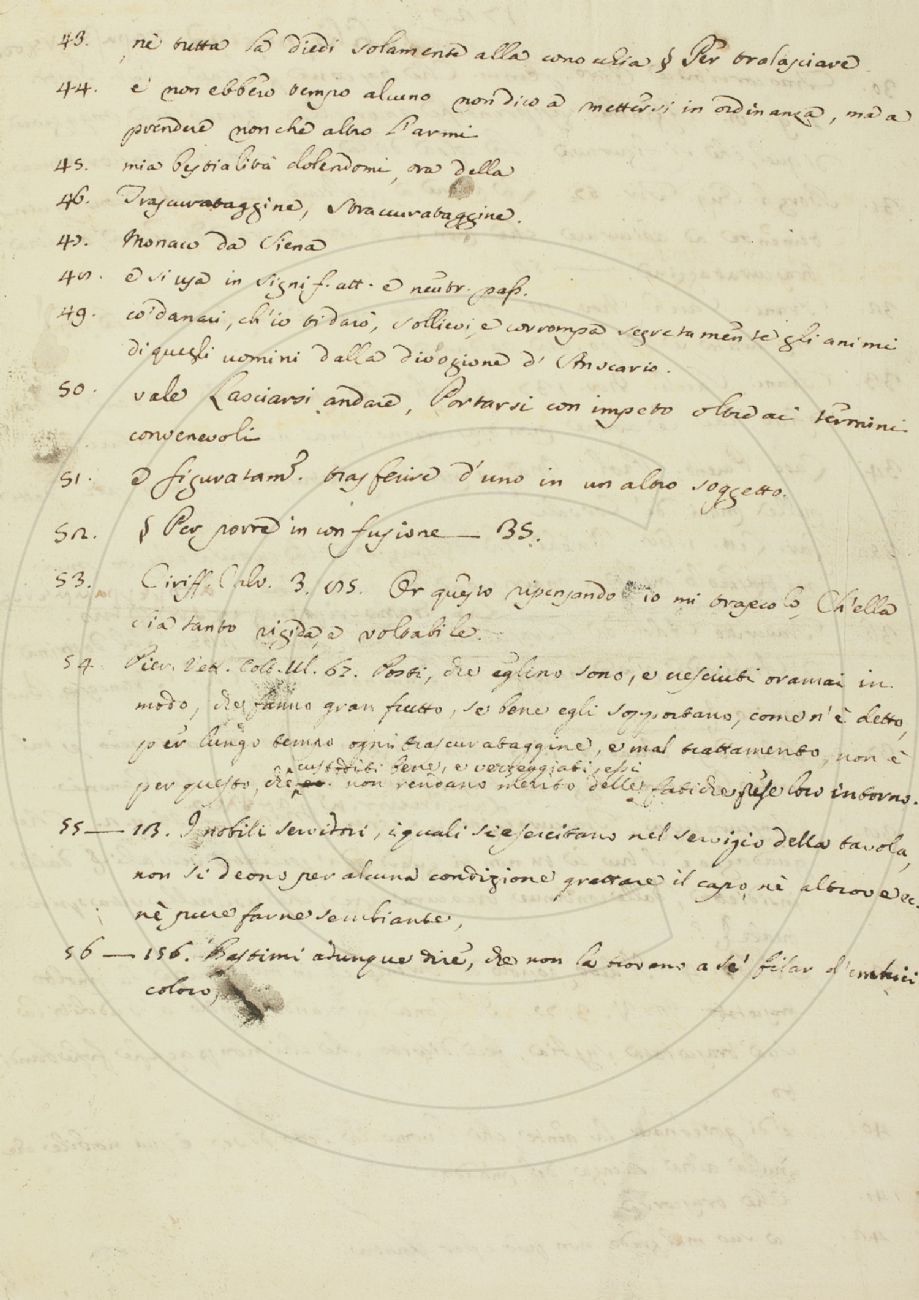 43. nè tutta la diedi solamente alla conocchia § Per tralasciare
44. e non ebbero tempo alcuno non dico a mettersi in ordinanza, ma a
prendere non che altro l'armi
45. mia bestialità dolendomi, ora della
46. Trascurataggine, straccurataggine.
47. Monaco da Siena
48. e si usa in signif. att. e neutr. pass.
49. co' danari, ch'io ti darò, sollievi, e corrompa segretamente gli animi
di quegli uomini dalla divozione d'Anscario.
50. vale Lasciarsi andare, Portarsi con impeto oltre ai termini
convenevoli
51. e figuratam.e trasferire d'uno in un altro soggetto.
52. § Per porre in confusione — 35.
53. Ciriff. Calv. 3. 85. Per questo ripensando io mi trasecolo, Ch'ella
sia tanto rigida, e voltabile.
54. Pier. Vett. Colt. Ul. 67. Posti, che eglino sono, e cresciuti oramai in
modo, che fanno gran frutto, se bene egli sopportano, come n'è detto,
per lungo tempo ogni trascurataggine, e mal trattamento, non è
custoditi bene, e vezzeggiati, essi
per questo, che non rendano merito delle fatiche fuse loro intorno.
55 — 113. I nobili servidori, i quali si esercitano nel servigio della tavola,
non si deono per alcuna condizione grattare il capo, nè altrove ec.
nè pure farne sembiante,
56 — 156. Bastimi adunque dire, che non la trovano a sè filar d'embrici
coloro,